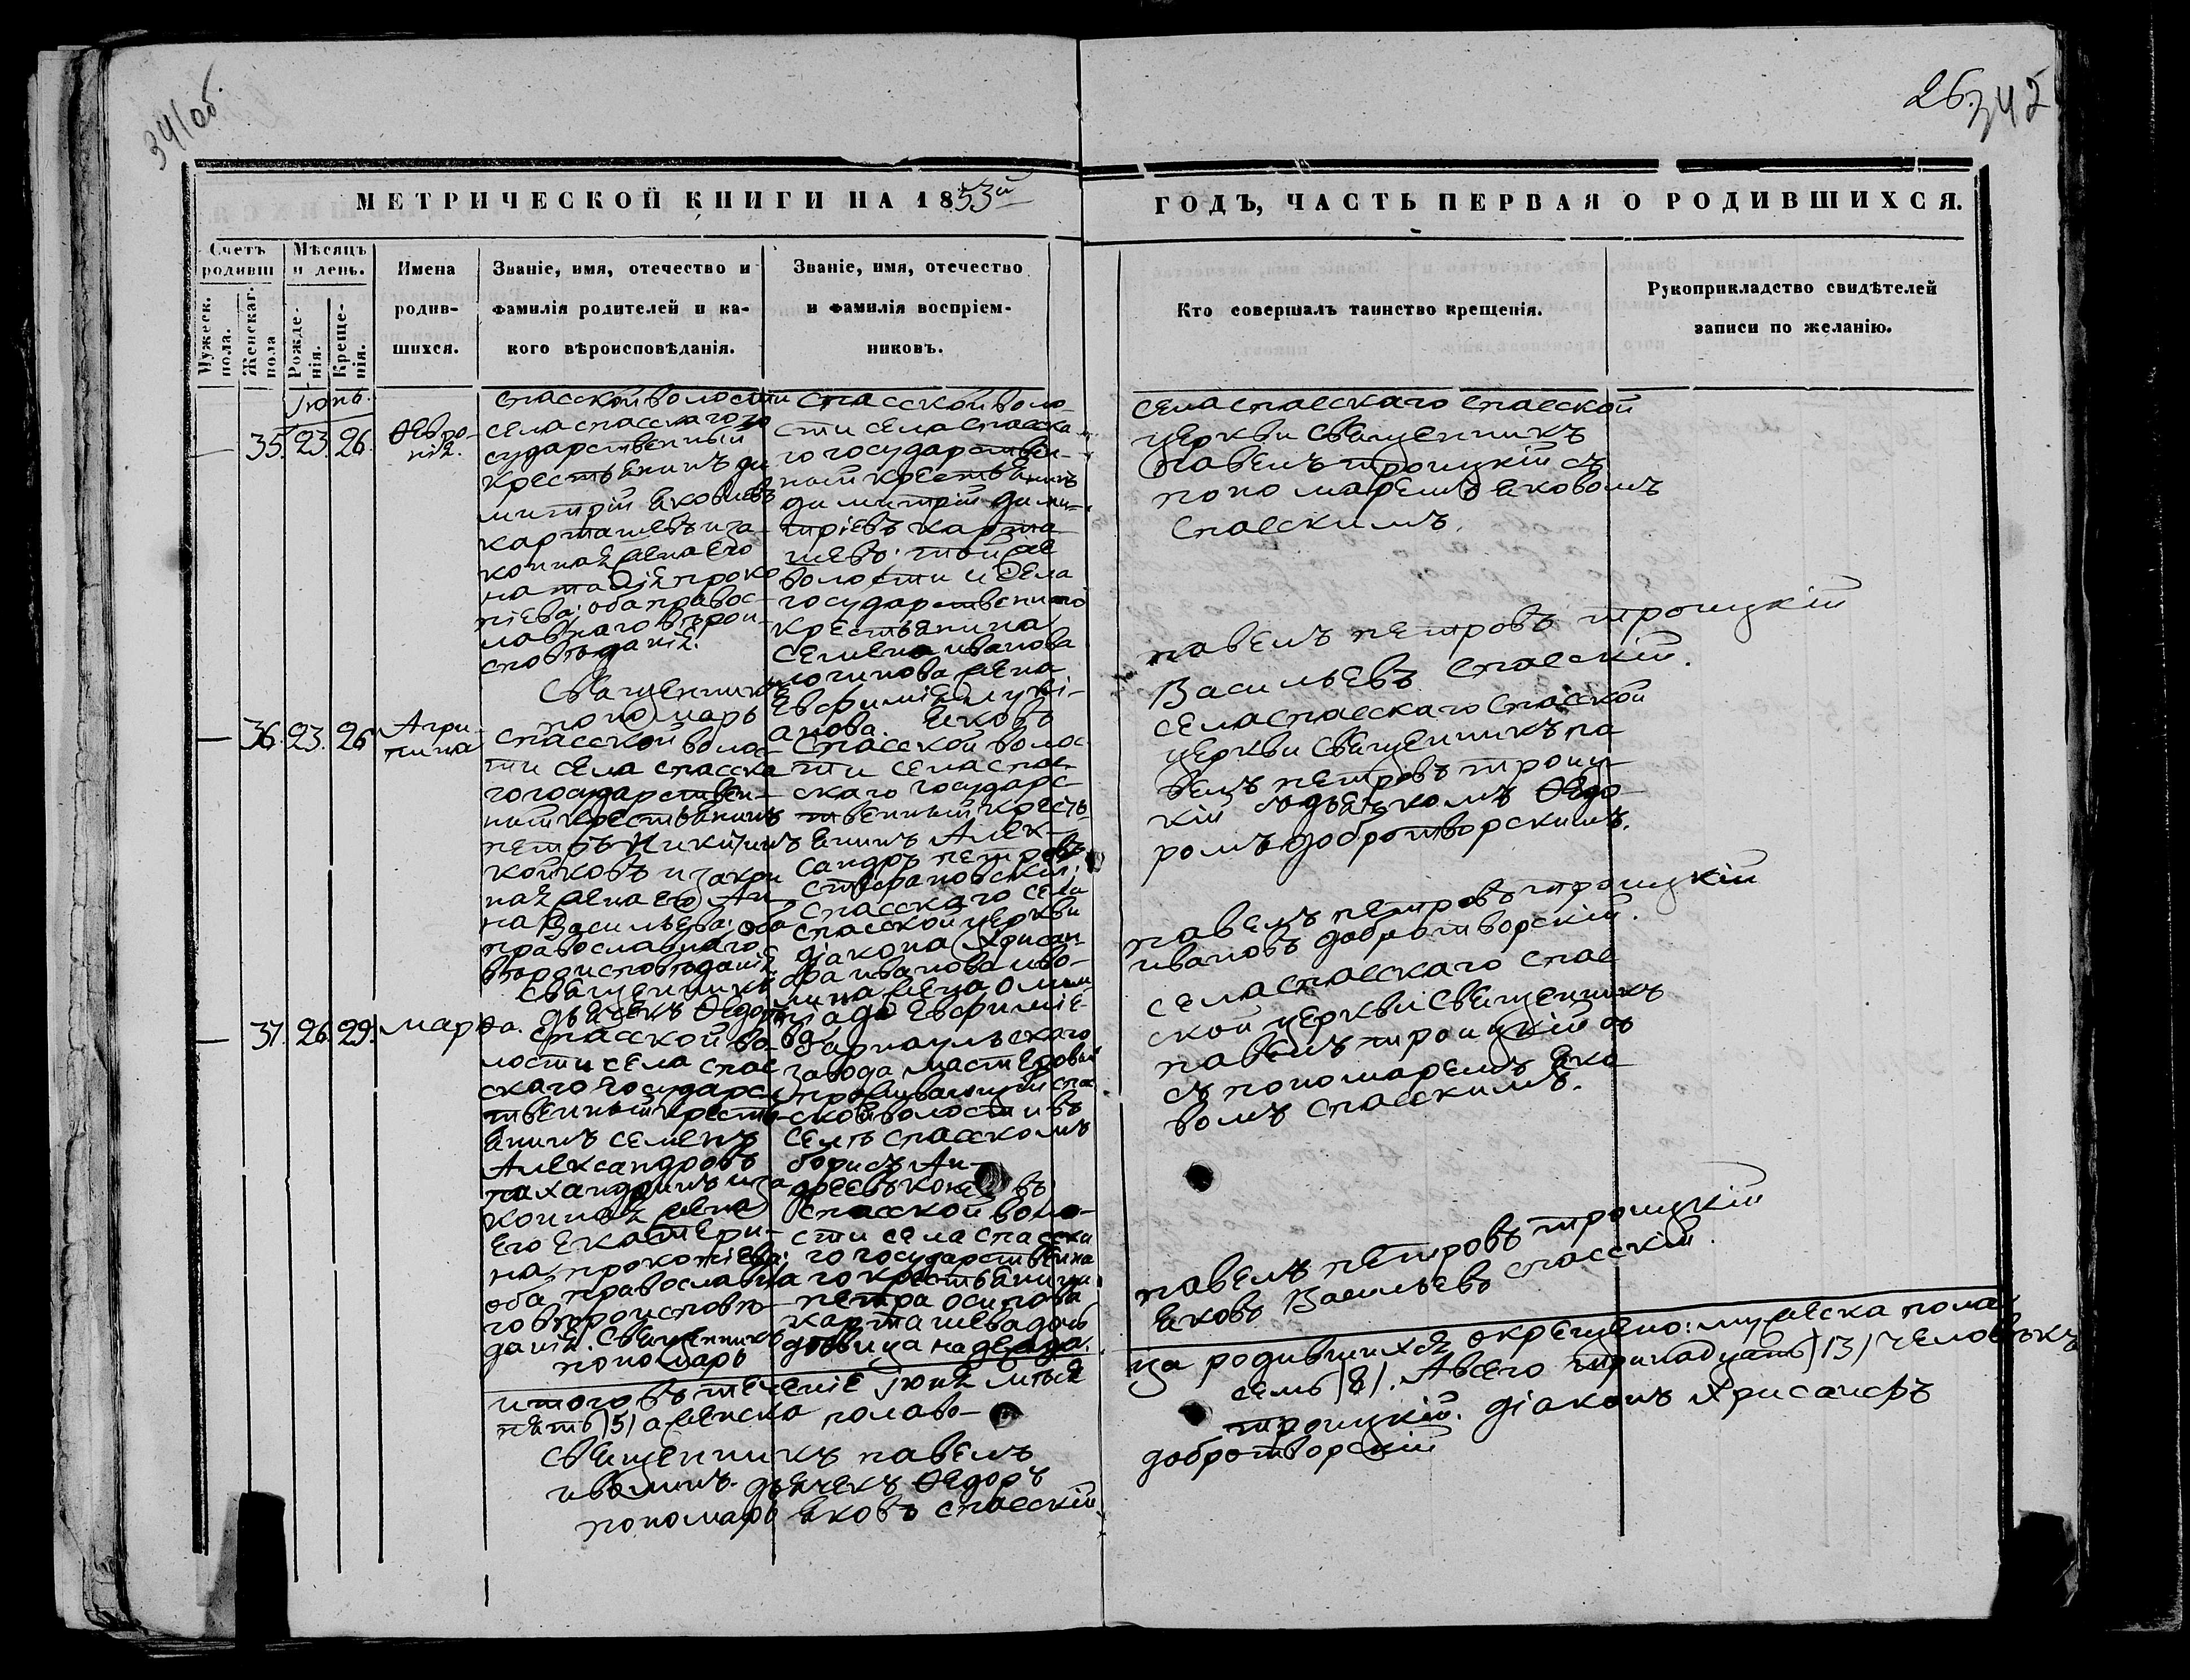 341об.
26.
342
МЕТРИЧЕСКОЙ КНИГИ НА 1853й
ГОДЪ, ЧАСТЬ ПЕРВАЯ О РОДИВШИХСЯ.
Счетъ родивш
Мужеск. пола.
Женскаг. пола
Мѣсяцъ и день.
Рожде-нія.
Креще-нія.
Имена
родив-
шихся.
Званіе, имя, отечество и
фамилія родителей и ка-
кого вѣроисповѣданія.
Званіе, имя, отечество
и фамилія воспріем-
никовъ.
Кто совершалъ таинство крещенія.
Рукоприкладство свидѣтелей
записи по желанію.
Іюнь.
— 35. 23. 26.
Ѳевро-
нія.
Спасской волости
села спасскаго го
сударственный
крестьянинъ ди
митрій яковлевъ
карташевъ и за-
конная жена его
наталія проко
піева; оба правос-
лавнаго вѣрои-
сповѣданія.
Священникъ
пономарь
Спасской воло-
сти села спасска-
го государствен-
ный крестьянинъ
димитрій дими-
тріевъ карта-
шевъ; той же
волости и села
государственнаго
крестьянина
семена иванова
логинова жена
Евфимія лукі-
анова. Яковъ
села спасскаго спасской
церкви священникъ
павелъ троицкій съ
пономаремъ яковомъ
спасскимъ.
павелъ петровъ троицкій
Васильевъ спасскій.
— 36. 23. 26
Агри-
пина
Спасской волос-
ти села спасска
го государствен-
ный крестьянинъ
петръ никитинъ
койковъ и закон
ная жена его Ан-
на Васильева; оба
православнаго
вѣроисповѣданія
Священникъ
дьячекъ Ѳедоръ
Спасской волос-
ти села спас-
скаго государс-
твенный кресть
янинъ Алек-
сандръ петровъ
спасскаго села
спасской церкви
діакона Хрисан-
фа иванова иво-
лина жена Олим-
піада Евфиміе-
ва
села спасскаго спасской
церкви священникъ па
велъ петровъ троиц-
кій съ дьячкомъ Ѳедо-
ромъ добротворскимъ.
павелъ петровъ троицкій
ивановъ добротворскій.
— 37. 26. 29.
Марѳа.
Спасской во-
лости села спас
скаго государс-
твенный кресть-
янинъ семенъ
Александровъ
паханринъ и за
конная жена
его Екатери-
на прокопіева;
оба православна
го вѣроисповѣ-
данія. Священникъ
пономарь
Барнаульскаго
завода мастеровый
проживающій спас
ской волости въ
селѣ спасскомъ
борисъ Ан-
дреевъ
спасской воло-
сти села спасска
го государственна
го крестьянина
петра осипова
карташева дочь
дѣвица надежда.
села спасскаго спас
ской церкви священникъ
павелъ троицкій съ
съ пономаремъ яко
вомъ спасскимъ.
павелъ петровъ троицкій
яковъ Васильевъ спасскій.
итого въ теченіе Іюня мѣся
ца родившихся окрещено: мужеска пола
пять)5) а женска полаво-
семь)8). А всего тринадцать)13) человѣкъ
Священникъ павелъ
троицкій. діаконъ Хрисанфъ
иволинъ. дьячекъ Ѳедоръ
добротворскій
пономарь яковъ спасскій